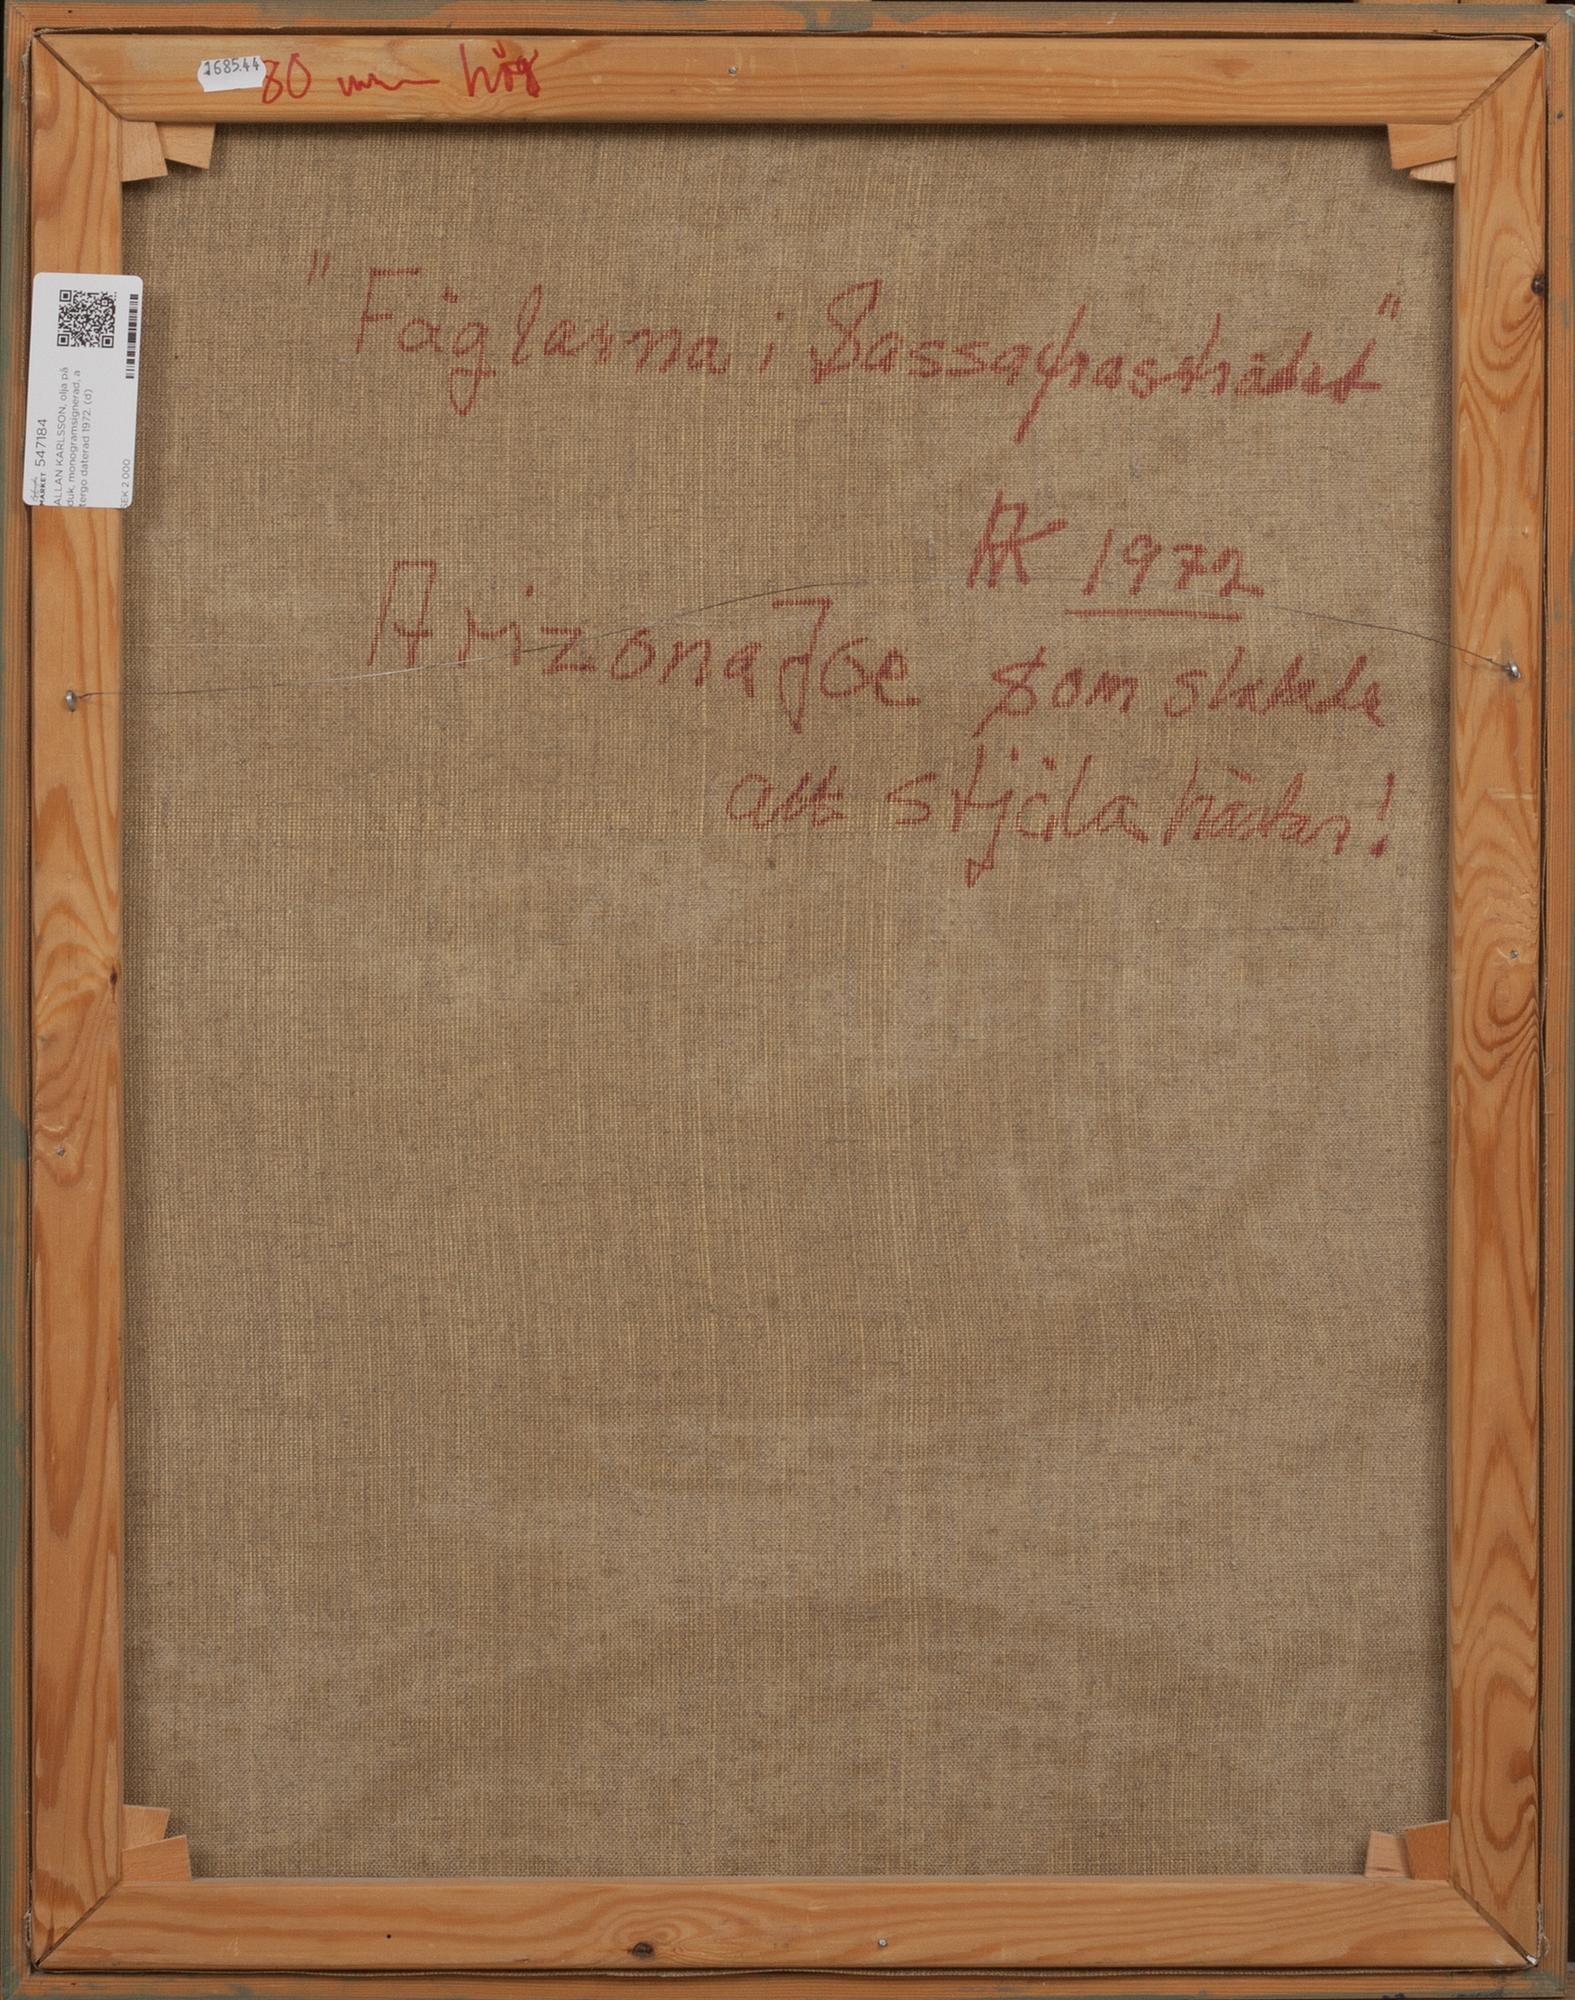 168544
80 mm hög
"Fåglarna i Sassafrasträdet"
AK 1972
Arizona Joe som slutade
att stjäla hästar!
MARKET 547184
ALLAN KARLSSON, olja på
duk, monogramsignerad, a
tergo daterad 1972. (d)
SEK 2 000